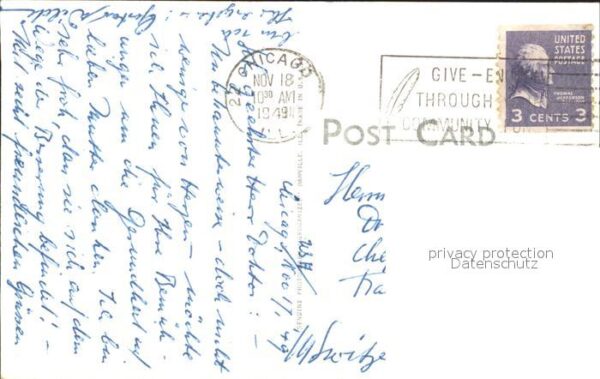 CHICAGO
NOV 18
10 30 AM
1949
GIVE - EN
THROUGH
COMMUNITY
UNITED
STATES
POSTAGE
THOMAS
JEFFERSON
3 CENTS 3
POST CARD
Chicago, Nov 17, 49
USA
geehrter Herr Doktor! –
Unbekannterweise – doch nicht
weniger von Herzen – möchte
ich Ihnen für Ihre Bemüh-
ungen um die Gesundheit der
lieben Mutter danken. Ich bin
sehr froh, dass sie sich auf dem
Wege der Besserung befindet! –
Mit recht freundlichen Grüssen
Herrn
privacy protection
Datenschutz